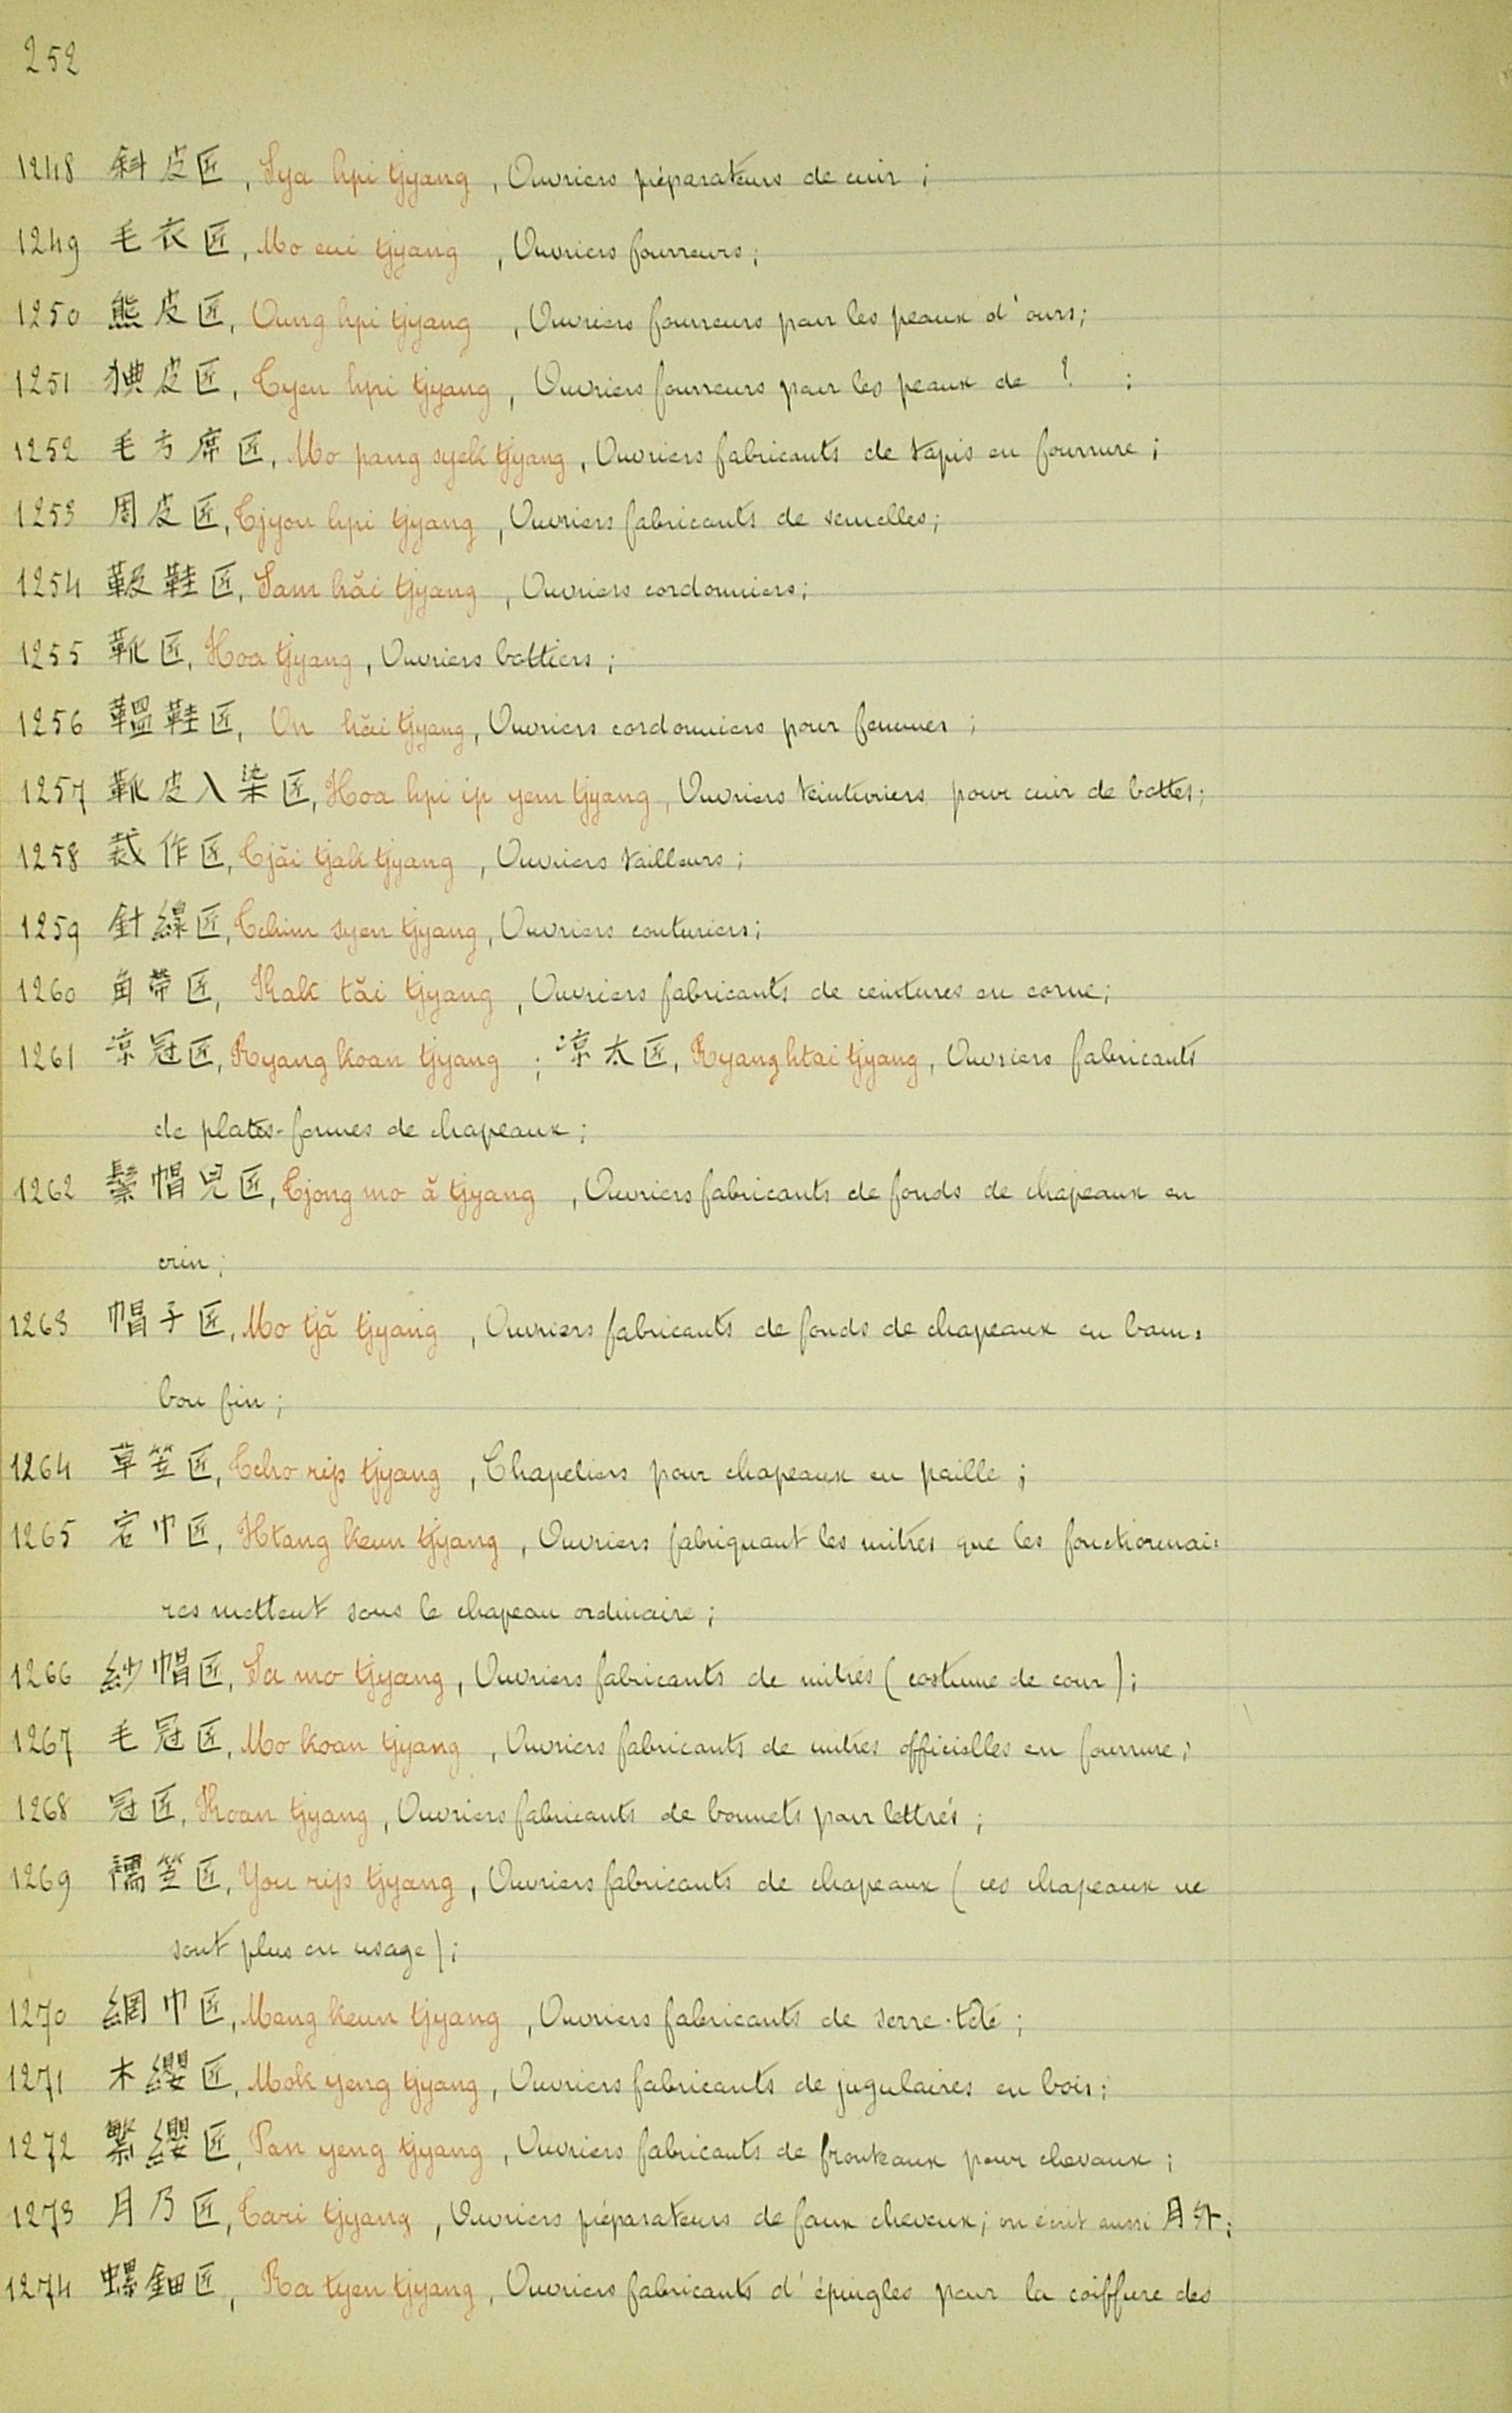 252
1248 斜皮匠, Sya hpi tjyang, Ouvriers préparateurs de cuir;
1249 毛衣匠, Mo eui tjyang, Ouvriers fourreurs;
1250 熊皮匠, Oung hpi tjyang, Ouvriers fourreurs pour les peaux d'ours;
1251 㹽皮匠, Tyen hpi tjyang, Ouvriers fourreurs pour les peaux de ? ;
1252 毛方席匠, Mo pang syek tjyang, Ouvriers fabricants de tapis en fourrure;
1253 周皮匠, Tjyou hpi tjyang, Ouvriers fabricants de semelles;
1254 靸鞋匠, Sam hăi tjyang, Ouvriers cordonniers;
1255 靴匠, Hoa tjyang, Ouvriers bottiers;
1256 鞰鞋匠, On hăi tjyang, Ouvriers cordonniers pour femmes;
1257 靴皮入染匠, Hoa hpi ip yem tjyang, Ouvriers teinturiers pour cuir de bottes;
1258 裁作匠, Tjăi tjak tjyang, Ouvriers tailleurs;
1259 針線匠, Tchim syen tjyang, Ouvriers couturiers;
1260 角帶匠, Kak tăi tjyang, Ouvriers fabricants de ceintures en corne;
1261 凉冠匠, Ryang koan tjyang; 凉太匠, Ryang htai tjyang, Ouvriers fabricants
de plates-formes de chapeaux;
1262 鬃帽兒匠, Tjong mo ă tjyang, Ouvriers fabricants de fonds de chapeaux en
crin;
1263 帽子匠, Mo tjă tjyang, Ouvriers fabricants de fonds de chapeaux en bam=
bou fin;
1264 草笠匠, Tcho rip tjyang, Chapeliers pour chapeaux en paille;
1265 宕巾匠, Htang keun tjyang, Ouvriers fabriquant les mitres que les fonctionnai=
res mettent sous le chapeau ordinaire;
1266 紗帽匠, Sa mo tjyang, Ouvriers fabricants de mitres (costume de cour);
1267 毛冠匠, Mo koan tjyang, Ouvriers fabricants de mitres officielles en fourrure;
1268 冠匠, Koan tjyang, Ouvriers fabricants de bonnets pour lettrés;
1269 襦笠匠, You rip tjyang, Ouvriers fabricants de chapeaux (ces chapeaux ne
sont plus en usage);
1270 網巾匠, Mang keun tjyang, Ouvriers fabricants de serre-tête;
1271 木纓匠, Mok yeng tjyang, Ouvriers fabricants de jugulaires en bois;
1272 繁纓匠, Pan yeng tjyang, Ouvriers fabricants de fronteaux pour chevaux;
1273 月乃匠, Tari tjyang, Ouvriers préparateurs de faux cheveux; on écrit aussi 月外;
1274 螺鈿匠, Ra tyen tjyang, Ouvriers fabricants d'épingles pour la coiffure des